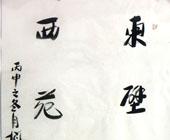 東壁
西苑
丙申之冬月